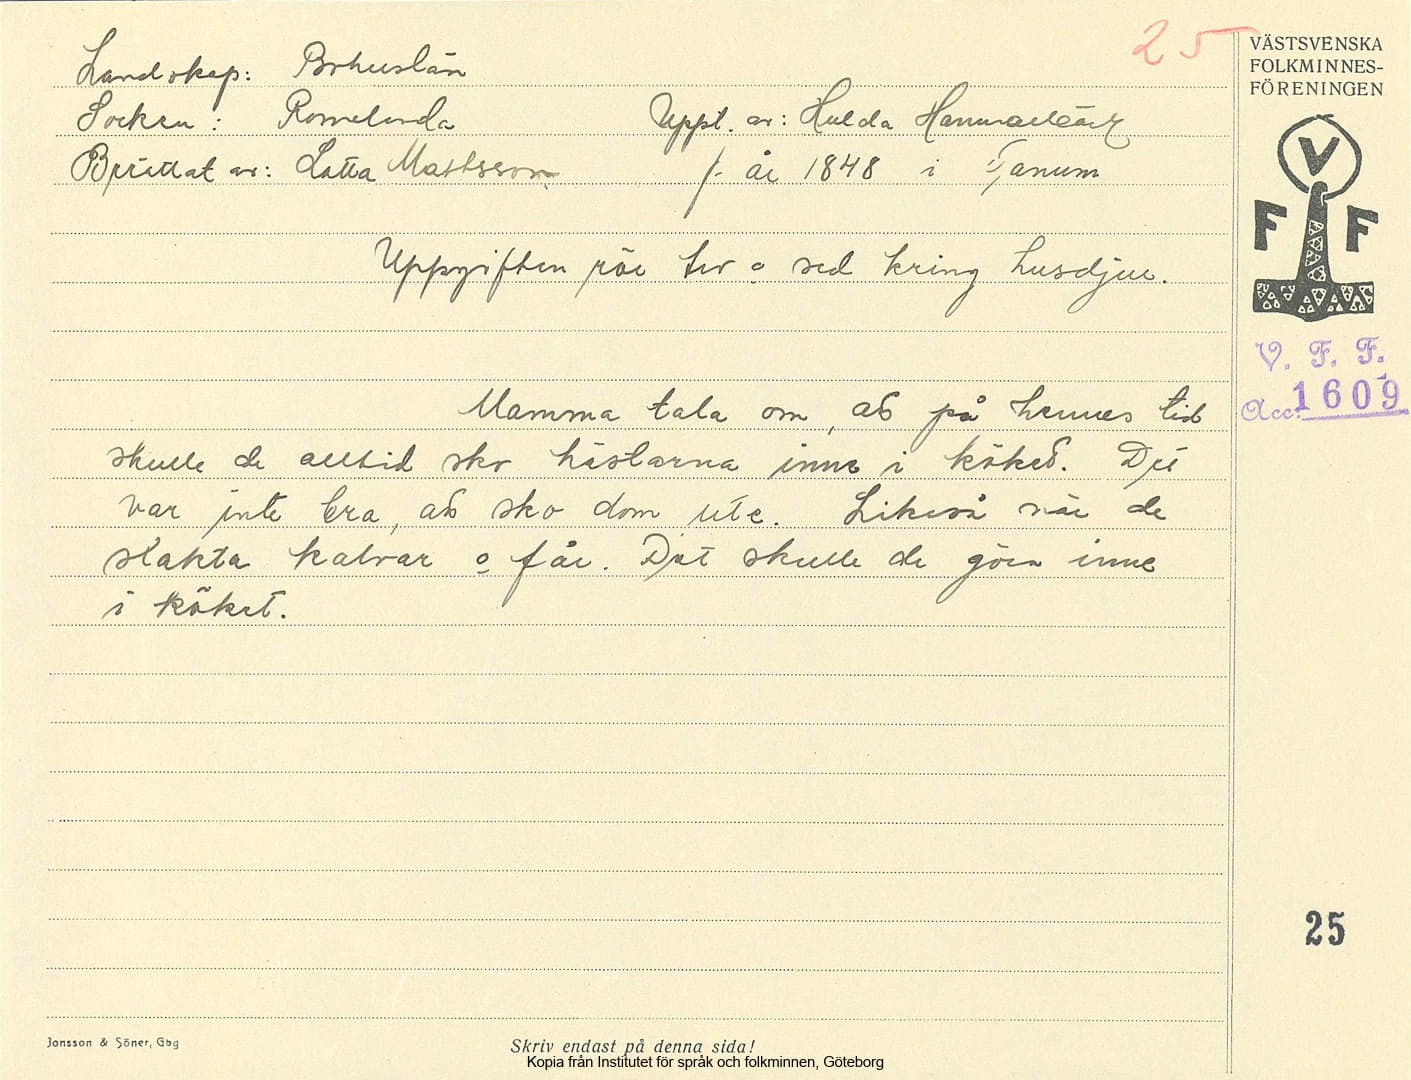 25
VÄSTSVENSKA
FOLKMINNES-
FÖRENINGEN
Landskap: Bohuslän
Socken: Romelanda Uppt. av: Hulda Hammarbäck
Berättat av: Lotta Mattsson f. år 1848 i Tanum
V
F F
Uppgiften rör tro o sed kring husdjur.
V. F. F.
Acc: 1609
Mamma tala om, att på hennes tid
skulle de alltid sko hästarna inne i köket. Det
var inte bra, att sko dom ute. Likeså när de
slakta kalvar o får. Det skulle de göra inne
i köket.
25
Jonsson & Söner, Gbg
Skriv endast på denna sida!
Kopia från Institutet för språk och folkminnen, Göteborg